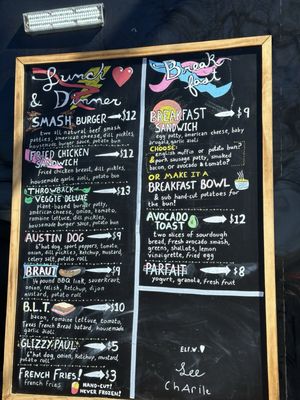 Lunch
& Dinner
SMASH BURGER $12
two all natural beef smash
patties, american cheese, onions,
housemade burger sauce, potato bun
FRIED CHICKEN $12
SANDWICH
fried chicken breast, dill pickles,
housemade garlic aioli, potato bun
THROWBACK $13
VEGGIE DELUXE
plant-based burger patty,
american cheese, onion, tomato,
romaine lettuce, dill pickles,
housemade burger sauce, potato
bun
AUSTIN DOG $9
6" hot dog, sport peppers, tomato,
onion, dill pickles, ketchup, mustard,
celery salt, potato roll
BRAUT $9
1/4 pound BBQ link, sauerkraut,
onion, relish, ketchup, dijon
mustard, potato roll
B.L.T. $10
bacon, romaine lettuce, tomato,
Texas French Bread batard, housemade
garlic aioli
GLIZZY PAUL $5
6" hot dog, onion, ketchup, mustard,
potato roll
FRENCH FRIES! $3
french fries
HAND-CUT!
NEVER FROZEN!
Breakfast
BREAKFAST $9
SANDWICH
egg patty, american cheese, baby
arugula, garlic aioli
CHOOSE:
english muffin or potato bun?
& pork sausage patty, smoked
bacon, or avocado & tomato?
OR MAKE IT A
BREAKFAST BOWL
& sub hand-cut potatoes for
the bun!
AVOCADO $12
TOAST
two slices of sourdough
bread, fresh avocado smash,
greens, shallots, lemon
vinaigrette, fried egg
PARFAIT $8
yogurt, granola, fresh fruit
Lee
CHARLIE